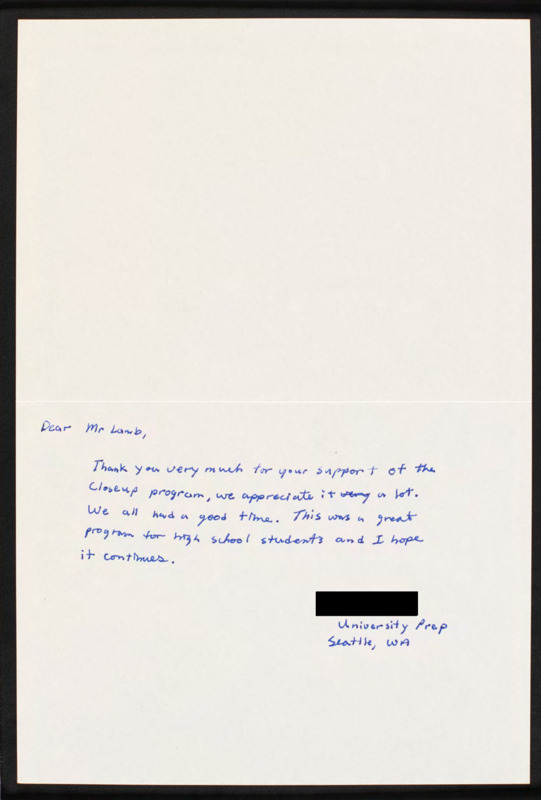 Dear Mr Lamb,
Thank you very much for your support of the
Closeup program, we appreciate it a lot.
We all had a good time. This was a great
program for high school students and I hope
it continues.
University Prep
Seattle, WA